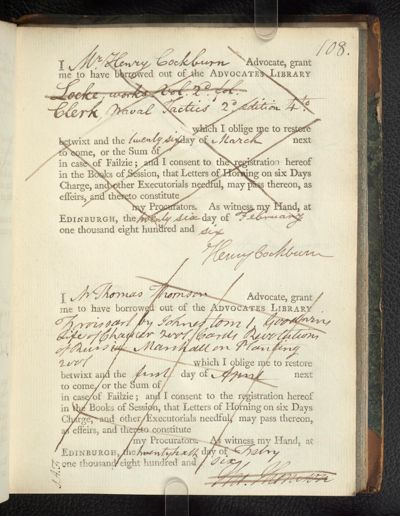 108.
I Mr. Henry Cockburn Advocate, grant
me to have borrowed out of the ADVOCATES LIBRARY
Locke, works Vol. 2d fol.
Clerk Naval Tactics 2d edition 4to
which I oblige me to restore
betwixt and the twenty six day of March next
to come, or the Sum of
in case of Failzie; and I consent to the registration hereof
in the Books of Session, that Letters of Horning on six Days
Charge, and other Executorials needful, may pass thereon, as
effeirs, and thereto constitute
my Procurators. As witness my Hand, at
EDINBURGH, the twenty six day of February
one thousand eight hundred and six
Henry Cockburn
I Mr Thomas Thomson Advocate, grant
me to have borrowed out of the ADVOCATES LIBRARY
Froissart by Johnes tom 1, Goodwins
Life of Chaucer 2 vols, Cards Revolutions
of Russia Marshall on Planting
2 vols which I oblige me to restore
betwixt and the first day of April next
to come, or the Sum of
in case of Failzie; and I consent to the registration hereof
in the Books of Session, that Letters of Horning on six Days
Charge, and other Executorials needful, may pass thereon,
as effeirs, and thereto constitute
my Procurators. As witness my Hand, at
EDINBURGH, the day of Febry
one thousand eight hundred and six
Tho. Thomson